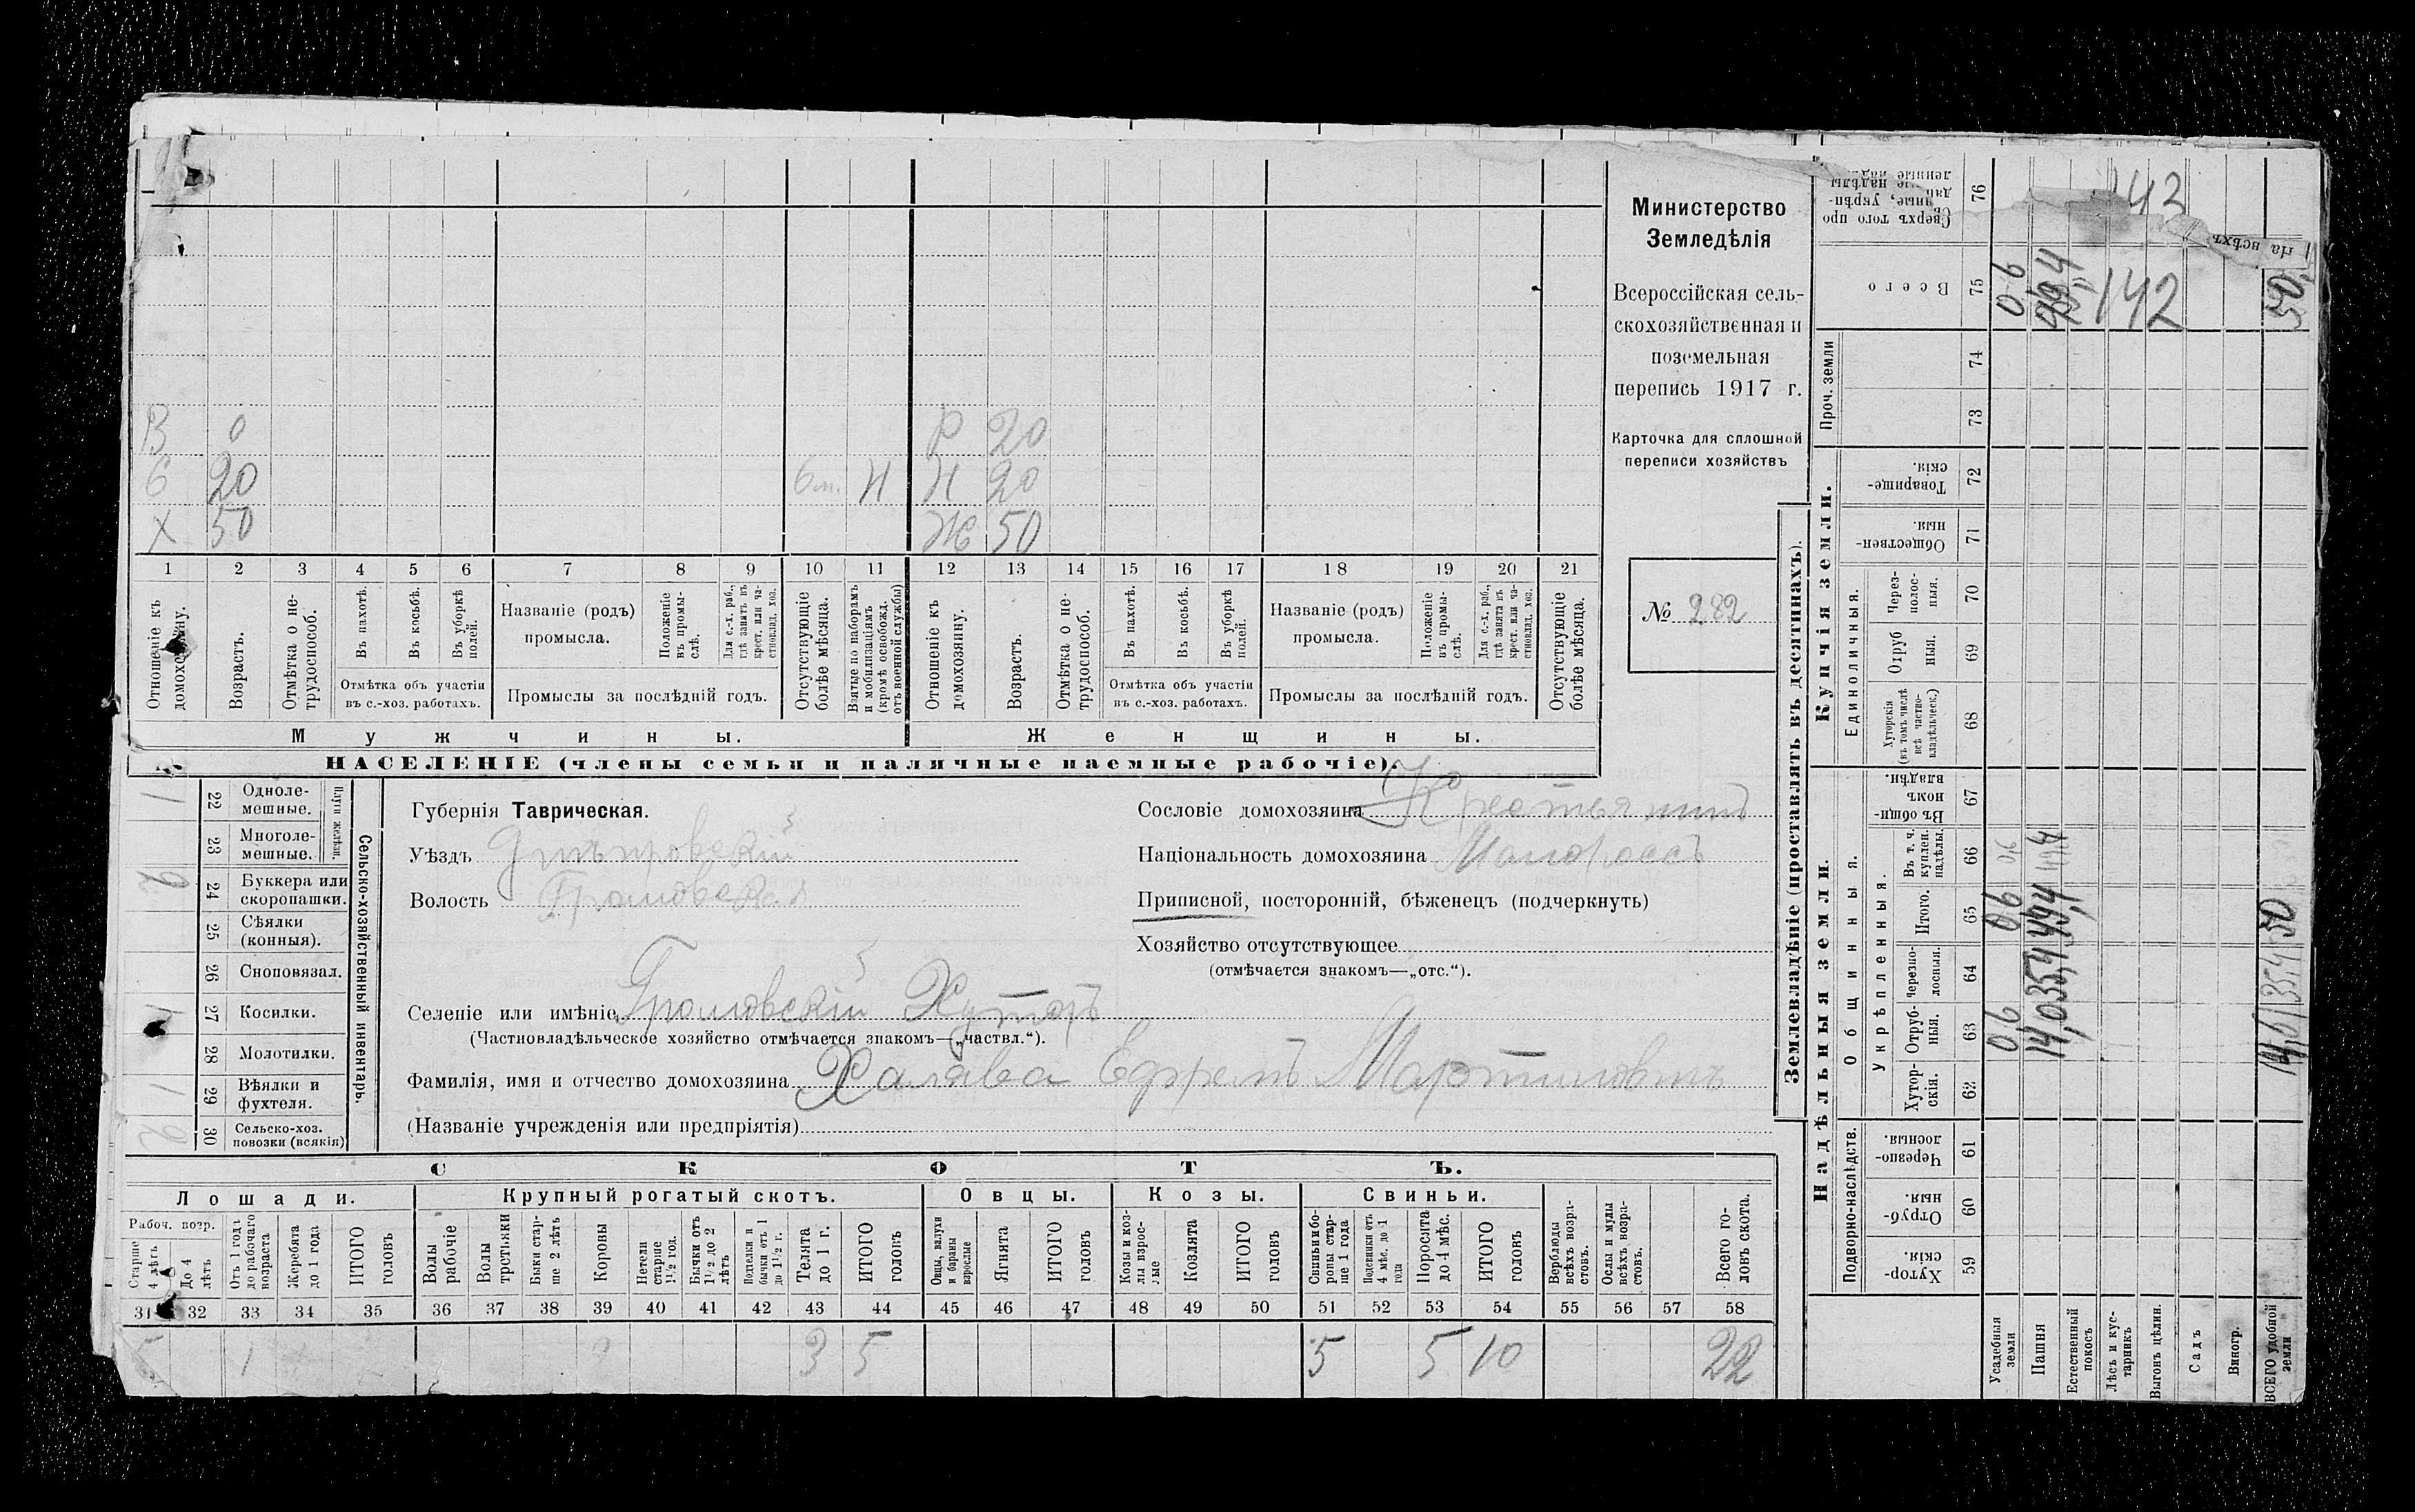 В 0 Р 20
С 20 6 м. Н Н 20
Х 50 Ж 50
1 2 3 4 5 6 7 8 9 10 11 12 13 14 15 16 17 18 19 20 21
Отношеніе къ домохозяину.
Возрастъ.
Отмѣтка о нетрудоспособ.
Въ пахотѣ.
Въ косьбѣ.
Въ уборкѣ полей.
Отмѣтка объ участіи
въ с.-хоз. работахъ.
Названіе (родъ)
промысла.
Положеніе въ промыслѣ.
Для с.-х. раб., гдѣ занятъ въ крест. или частновлад. хоз.
Промыслы за послѣдній годъ.
Отсутствующіе болѣе мѣсяца.
Взятые по наборамъ и мобилизаціямъ (кромѣ освобожд. отъ военной службы)
Отношеніе къ домохозяину.
Возрастъ.
Отмѣтка о нетрудоспособ.
Въ пахотѣ.
Въ косьбѣ.
Въ уборкѣ полей.
Отмѣтка объ участіи
въ с.-хоз. работахъ.
Названіе (родъ)
промысла.
Положеніе въ промыслѣ.
Для с.-х. раб., гдѣ занята въ крест. или частновлад. хоз.
Промыслы за послѣдній годъ.
Отсутствующіе болѣе мѣсяца.
Мужчины.
Женщины.
НАСЕЛЕНІЕ (члены семьи и наличные наемные рабочіе).
Министерство
Земледѣлія
Всероссійская сель-
скохозяйственная и
поземельная
перепись 1917 г.
Карточка для сплошной
переписи хозяйствъ
№ 282
Губернія Таврическая.
Уѣздъ Днѣпровскій
Волость Громовская
Сословіе домохозяина Крестьянинъ
Національность домохозяина Малороссъ
Приписной, посторонній, бѣженецъ (подчеркнуть)
Хозяйство отсутствующее
(отмѣчается знакомъ—„отс.“).
Селеніе или имѣніе Громовскій Хуторъ
(Частновладѣльческое хозяйство отмѣчается знакомъ—„частвл.“).
Фамилія, имя и отчество домохозяина Халява Ефремъ Мартиновичъ
(Названіе учрежденія или предпріятія)
Сельско-хозяйственный инвентарь.
Плуги желѣзн.
1 22 Одноле-
мешные.
23 Многоле-
мешные.
24 Буккера или
скоропашки.
25 Сѣялки
(конныя).
26 Сноповязал.
27 Косилки.
28 Молотилки.
1 29 Вѣялки и
фухтеля.
2 30 Сельско-хоз.
повозки (всякія)
СКОТЪ.
Лошади.
Крупный рогатый скотъ.
Овцы.
Козы.
Свиньи.
Рабоч. возр.
Старше 4 лѣтъ
До 4 лѣтъ
Отъ 1 года до рабочаго возраста
Жеребята до 1 года
ИТОГО головъ
Волы рабочіе
Волы третьяки
Быки старше 2 лѣтъ
Коровы
Нетели старше 1½ год.
Бычки отъ 1½ до 2 лѣтъ
Подтелки и бычки отъ 1 до 1½ г.
Телята до 1 г.
ИТОГО головъ
Овцы, валухи и бараны взрослые
Ягнята
ИТОГО головъ
Козы и козлы взрослые
Козлята
ИТОГО головъ
Свиньи и боровы старше 1 года
Подсвинки отъ 4 мѣс. до 1 года
Поросята до 4 мѣс.
ИТОГО головъ
Верблюды всѣхъ возрастовъ.
Ослы и мулы всѣхъ возрастовъ.
Всего головъ скота.
31 32 33 34 35 36 37 38 39 40 41 42 43 44 45 46 47 48 49 50 51 52 53 54 55 56 57 58
5 1 3 5 5 5 10 22
Землевладѣніе (проставлять въ десятинахъ).
Надѣльныя земли.
Купчія земли.
Проч. земли
Общинныя.
Укрѣпленныя.
Подворно-наслѣдств.
Единоличныя.
Сверхъ того про
76
Всего 75
74
73
Товарищескія. 72
Общественныя. 71
Черезполосныя. 70
Отрубныя. 69
Хуторскія (въ томъ числѣ всѣ частновладѣльческ.) 68
Въ общинномъ владѣн. 67
Въ т. ч. куплен. надѣлы. 66
Итого. 65
Черезполосныя. 64
Отрубныя. 63
Хуторскія. 62
Черезполосныя. 61
Отрубныя. 60
Хуторскія. 59
Усадебныя земли
Пашня
Естественный покосъ
Лѣсъ и кустарникъ
Выгонъ цѣлин.
Садъ
Виногр.
ВСЕГО удобной земли
06
142
143
50
На всѣхъ